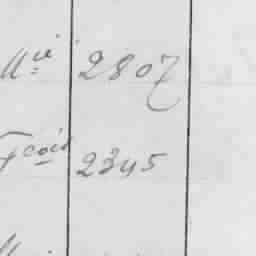 Mie 2807
Fcois 2345